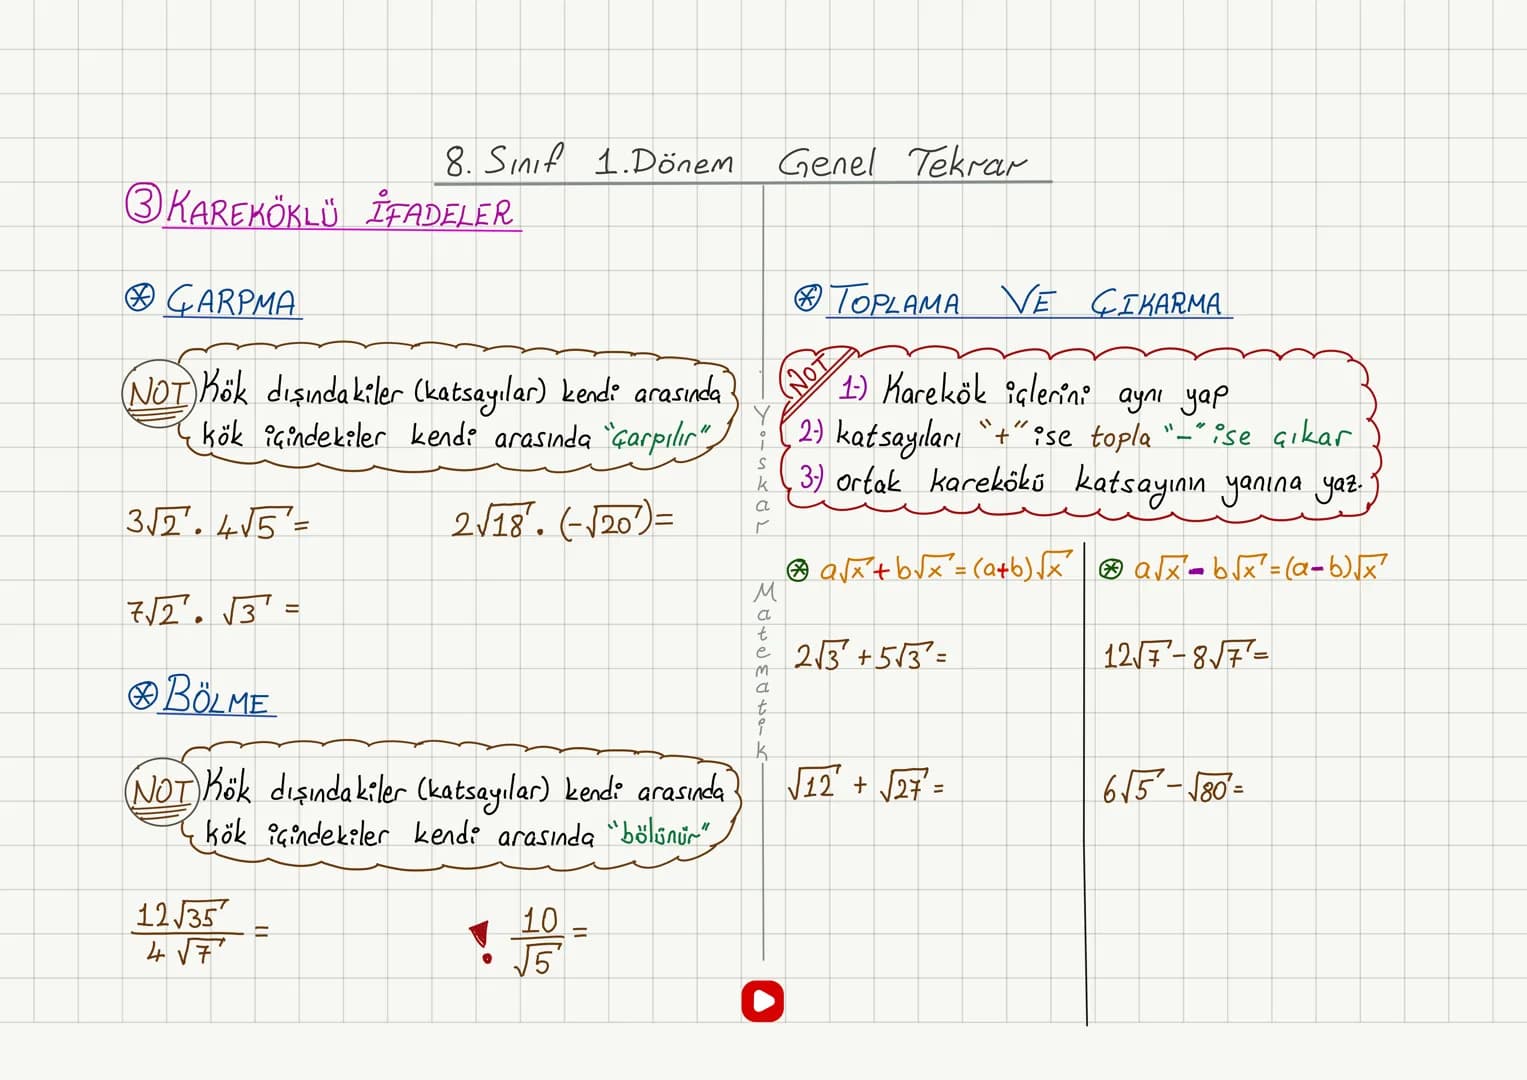 8. Sınıf 1.Dönem Genel Tekrar
③ KAREKÖKLÜ İFADELER
⊛ ÇARPMA
NOT Kök dışındakiler (katsayılar) kendi arasında
kök içindekiler kendi arasında "çarpılır"
3√2 . 4√5 =
2√18 . (-√20) =
7√2 . √3 =
⊛ BÖLME
NOT Kök dışındakiler (katsayılar) kendi arasında
kök içindekiler kendi arasında "bölünür"
12√35 / 4√7 =
! 10 / √5 =
Yiskar Matematik
⊛ TOPLAMA VE ÇIKARMA
NOT
1-) Karekök içlerini aynı yap
2-) katsayıları "+" ise topla "-" ise çıkar
3-) ortak karekökü katsayının yanına yaz.
⊛ a√x + b√x = (a+b)√x
2√3 + 5√3 =
√12 + √27 =
⊛ a√x - b√x = (a-b)√x
12√7 - 8√7 =
6√5 - √80 =